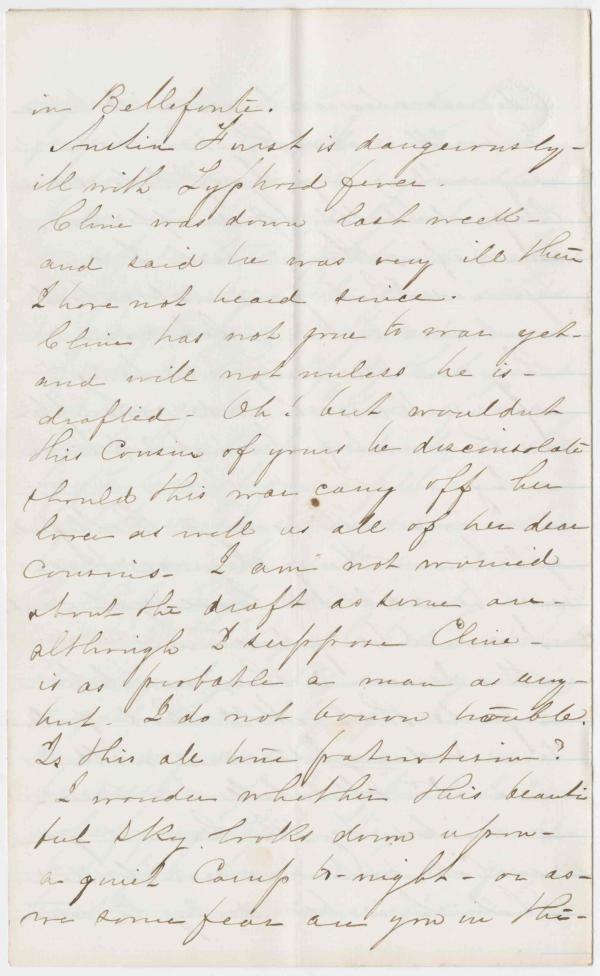 in Bellefonte.
Austin Furst is dangerously-
ill with Typhoid fever.
Cline was down last week-
and said he was very ill then
I have not heard since.
Cline has not gone to war yet-
and will not unless he is-
drafted- Oh! but wouldnt
this Cousin of yours be disconsolate
should this war carry off her
lover as well as all of her dear
Cousins- I am not worried
about the draft as some are-
although I suppose Cline-
is as probable a man as any-
but- I do not borrow trouble.
Is this all true patriotism?
I wonder whether this beauti
ful sky looks down upon-
a quiet Camp to-night- or as-
we some fear are you in the-